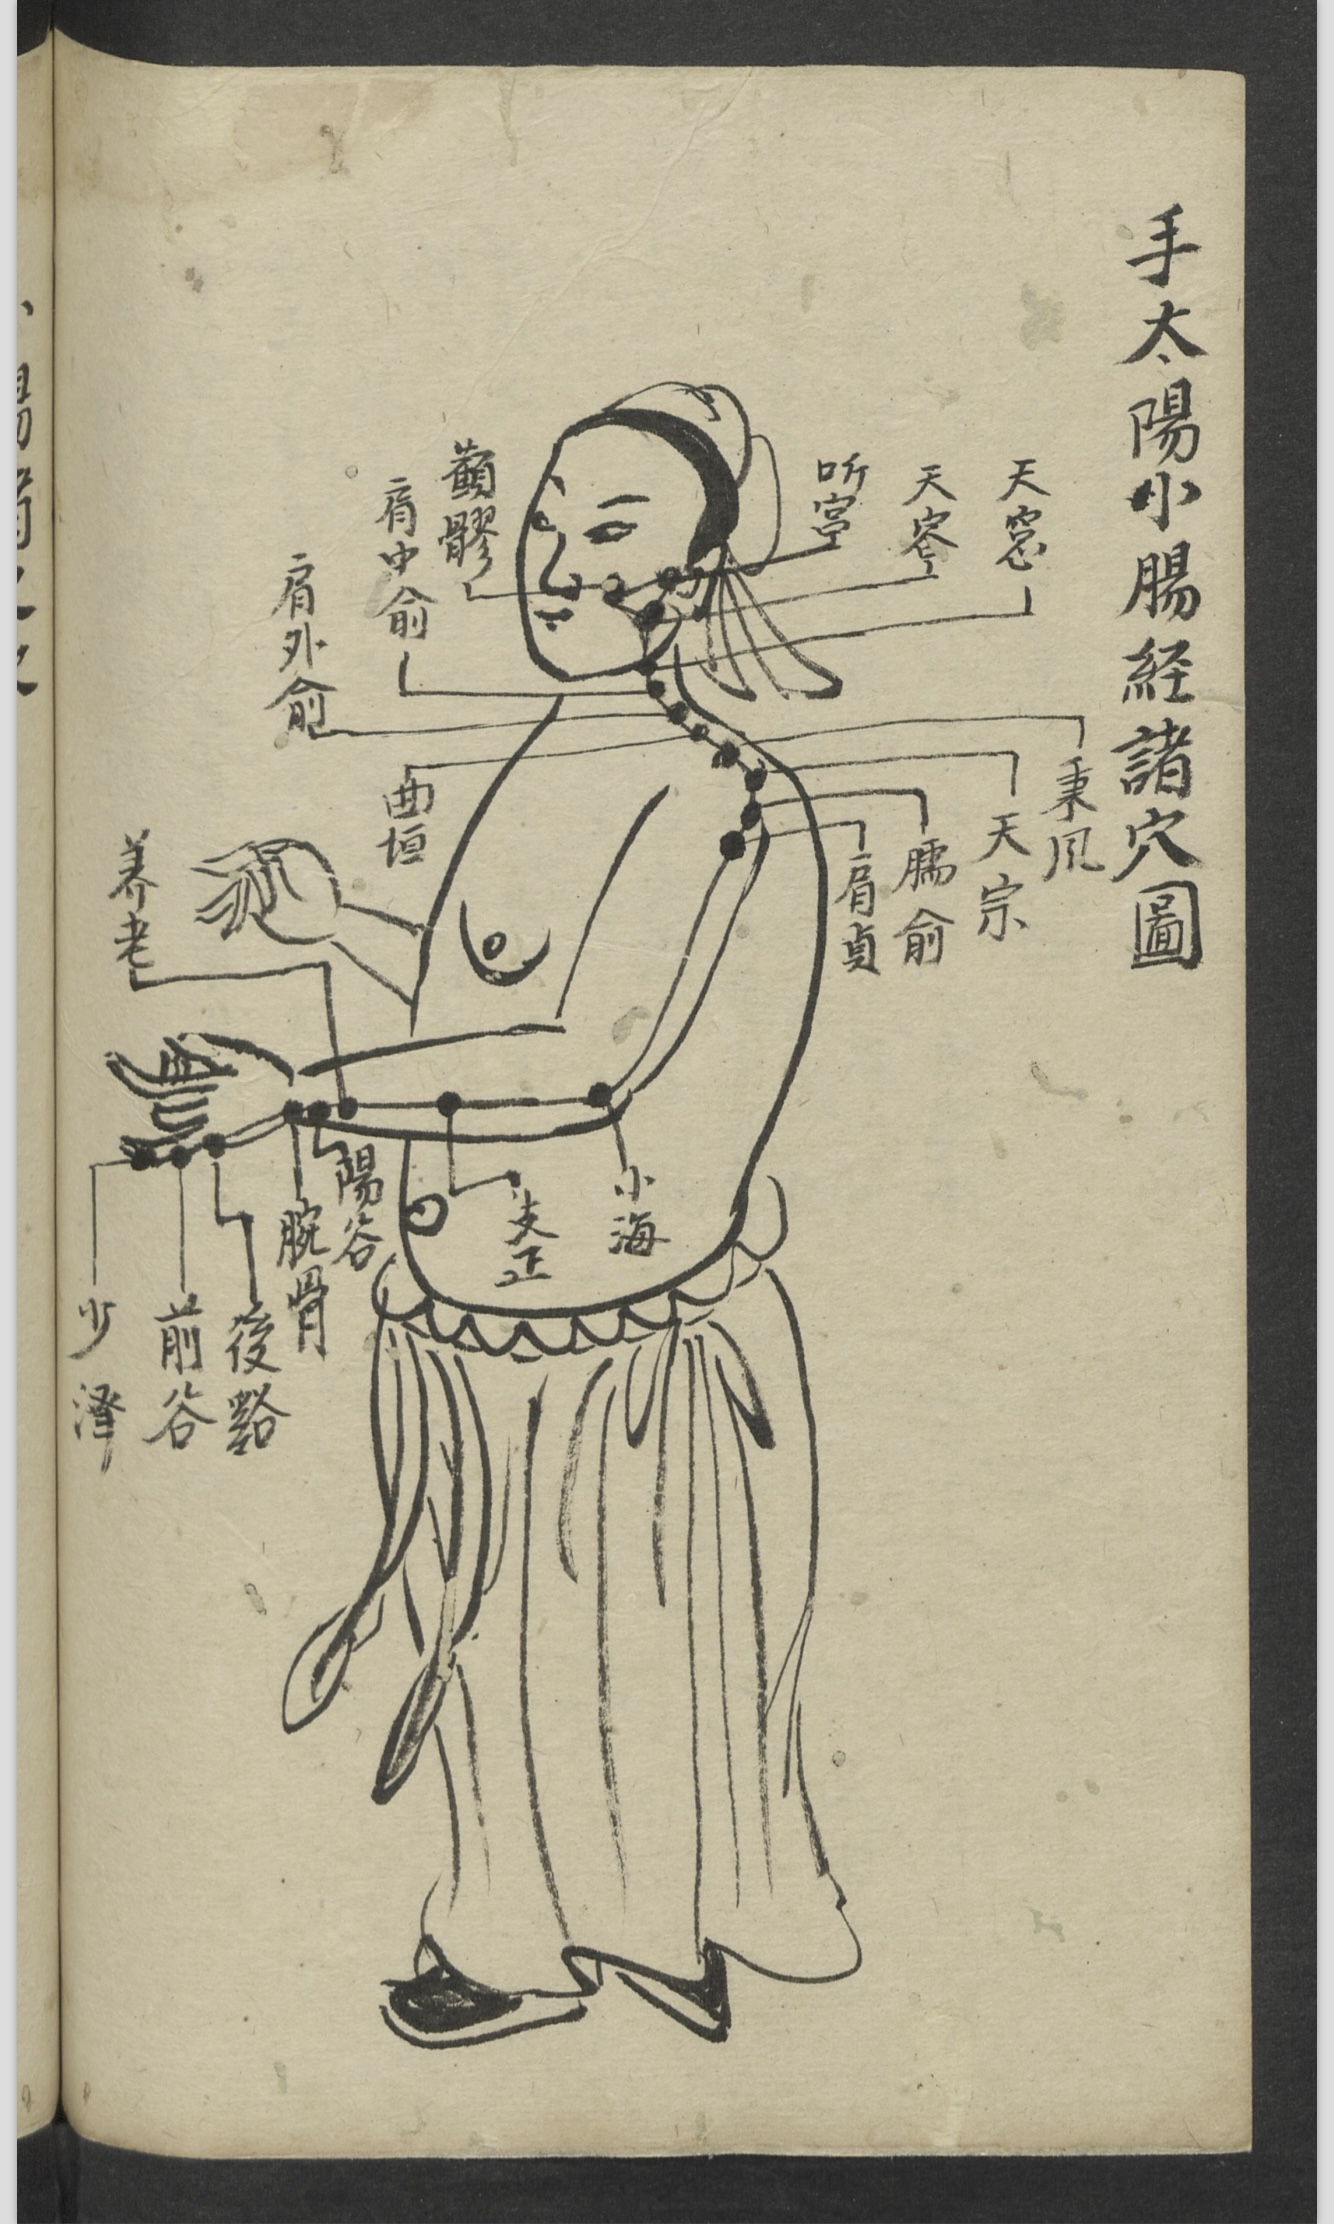 手太陽小腸経諸穴圖
天窓
天容
听宮
顴髎
肩中俞
肩外俞
曲垣
秉风
天宗
臑俞
肩貞
養老
小海
支正
陽谷
腕骨
後谿
前谷
少澤